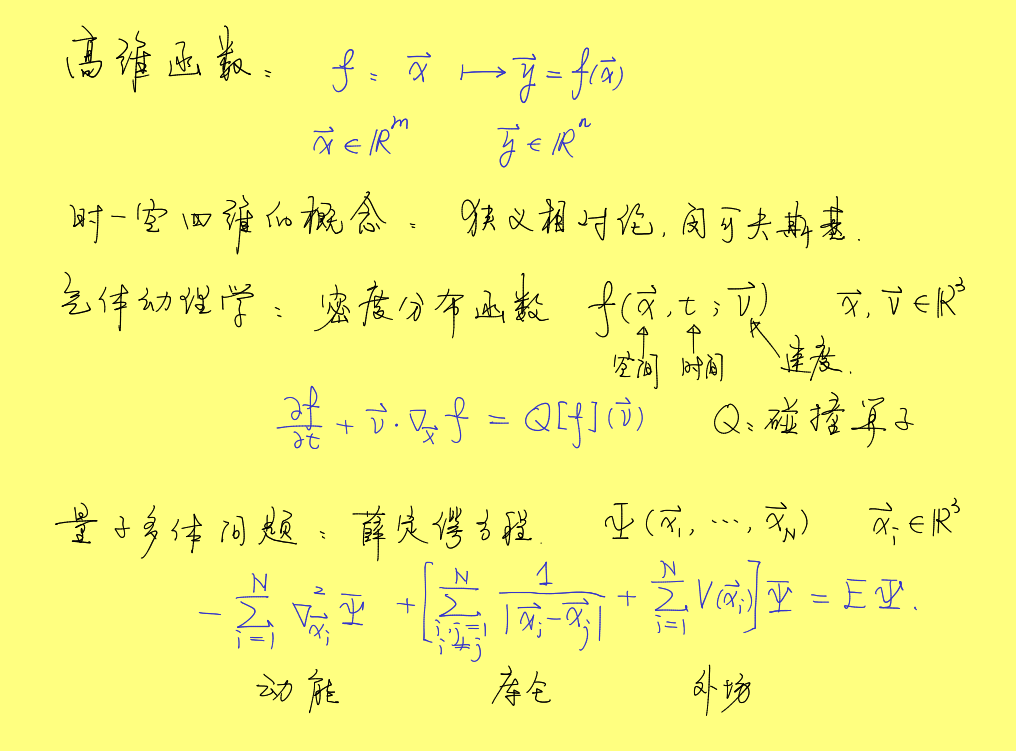 高维函数: f: \vec{x} ↦ \vec{y} = f(\vec{x})
\vec{x} ∈ ℝ^m \vec{y} ∈ ℝ^n
时-空四维的概念: 狭义相对论, 闵可夫斯基.
气体动理学: 密度分布函数 f(\vec{x}, t; \vec{v}) \vec{x}, \vec{v} ∈ ℝ^3
空间 时间 速度.
\frac{∂f}{∂t} + \vec{v}·∇_{\vec{x}} f = Q[f](\vec{v}) Q: 碰撞算子
量子多体问题: 薛定谔方程. Ψ(\vec{x}_1, ⋯, \vec{x}_N) \vec{x}_i ∈ ℝ^3
-\sum_{i=1}^{N} ∇^2_{\vec{x}_i} Ψ + [\sum_{i,j=1, i≠j}^{N} \frac{1}{|\vec{x}_i - \vec{x}_j|} + \sum_{i=1}^{N} V(\vec{x}_i)] Ψ = E Ψ.
动能 库仑 外场